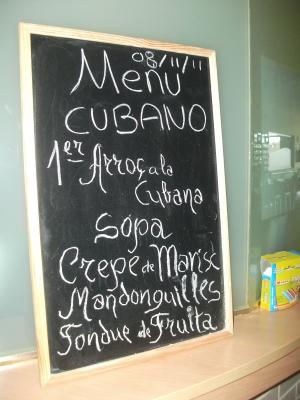 08/11/11
Menú
CUBANO
1er Arroç a la
Cubana
Sopa
Crepe de Marisc
Mandonguilles
Fondue de Fruita